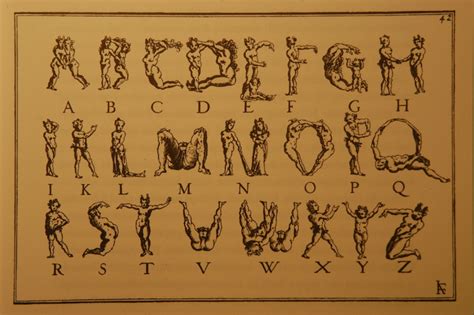 42
A B C D E F G H
I K L M N O P Q
R S T V U W X Y Z